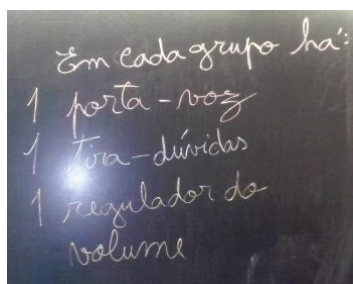 Em cada grupo há:
1 porta-voz
1 tira-dúvidas
1 regulador do
volume